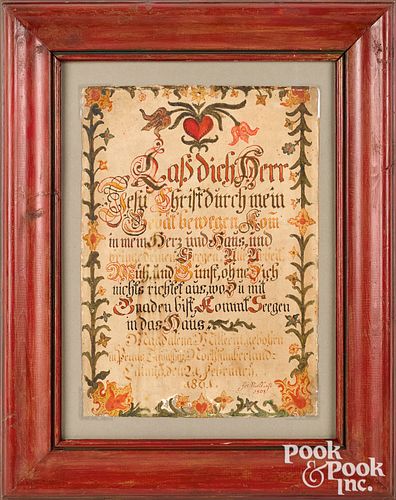 Laß dich Herr
Jesu Christ durch mein
Gebät bewegen, Kom̄
in mein Herz und Haus, und
bringe deinen Seegen. All Arbeit,
Müh, und Gunst, ohne Dich
nichts richtet aus, wo du mit
Gnaden bist, Kommt Seegen
in das Haus.
gebohren
in Penns Northumberland-
den 24 Februar,
1801.
POOK
& POOK
INC.